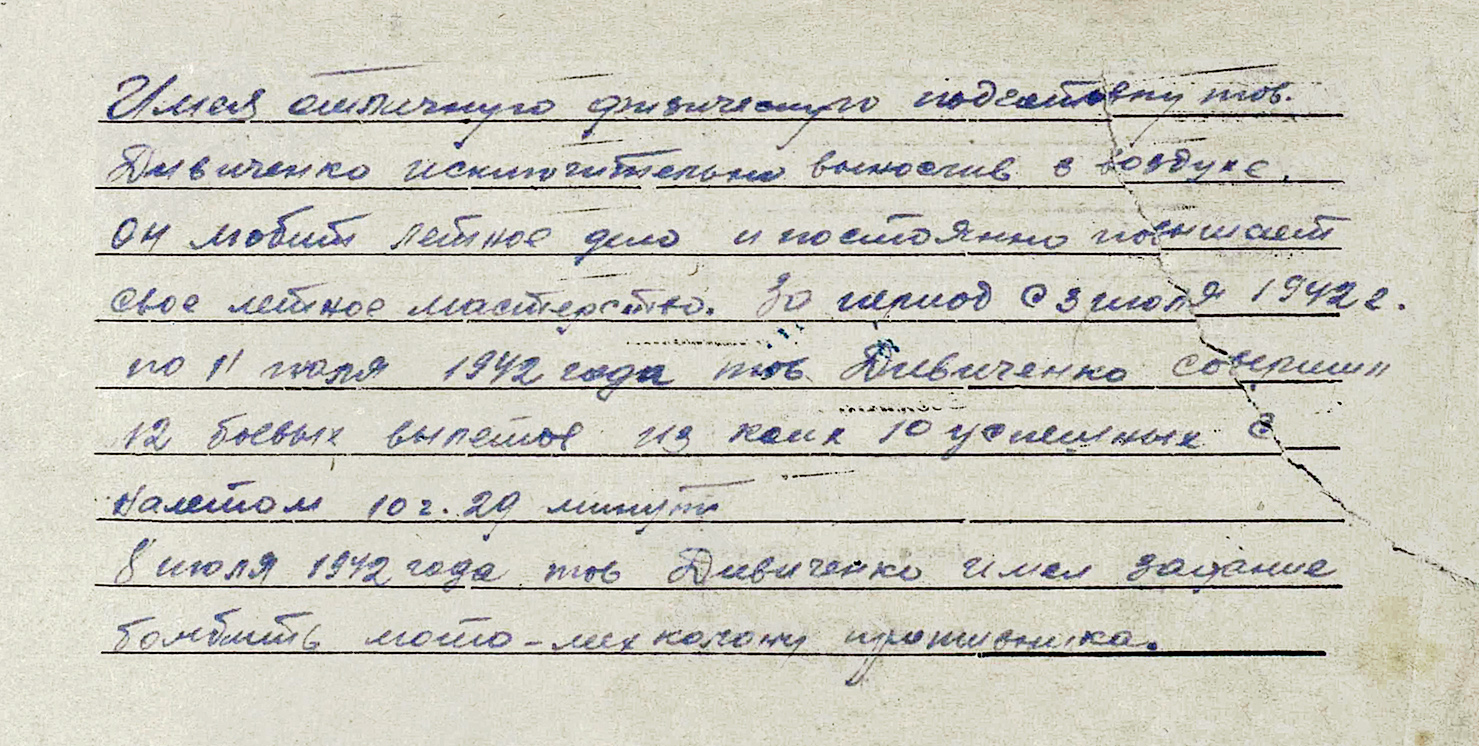 Имея отличную физическую подготовку тов.
Дивиченко исключительно вынослив в воздухе.
Он любит летное дело и постоянно повышает
свое летное мастерство. За период с 3 июля 1942 г.
по 11 июля 1942 года тов. Дивиченко совершил
12 боевых вылетов из коих 10 успешных с
налетом 10 г. 29 минут
8 июля 1942 года тов Дивиченко имел задание
бомбить мото-мех колону противника.